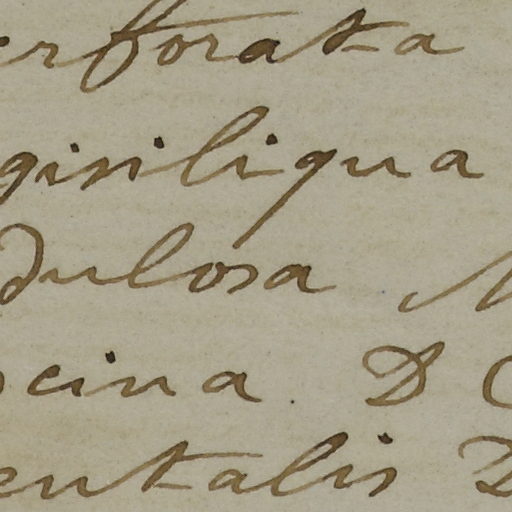 erforata
gisiliqua
dulosa
cina. D
entalis D